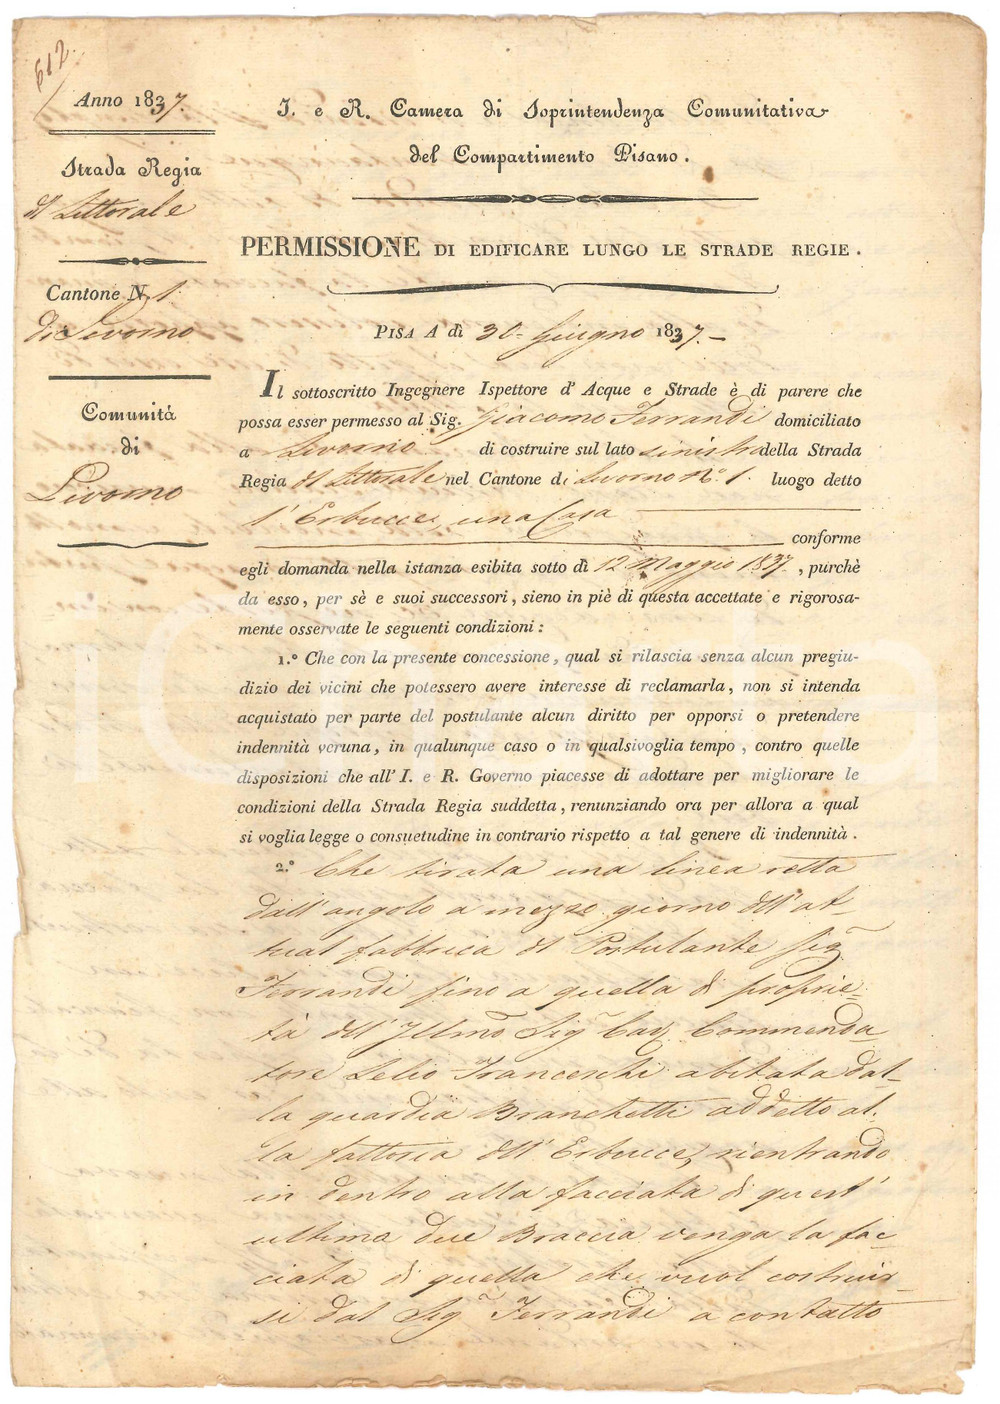 612.
Anno 1837.
Strada Regia
del Littorale
Cantone N. 1.
di Livorno
Comunità
di
Livorno
I. e R. Camera di Soprintendenza Comunitativa
del Compartimento Pisano.
PERMISSIONE DI EDIFICARE LUNGO LE STRADE REGIE.
PISA A dì 30. Giugno 1837.
Il sottoscritto Ingegnere Ispettore d' Acque e Strade è di parere che
possa esser permesso al Sig. Giacomo Ferrandi domiciliato
a Livorno di costruire sul lato sinistro della Strada
Regia del Littorale nel Cantone di Livorno N.° 1. luogo detto
l'Erbucce, una Casa
conforme
egli domanda nella istanza esibita sotto dì 12 Maggio 1837., purchè
da esso, per sè e suoi successori, sieno in piè di questa accettate e rigorosa-
mente osservate le seguenti condizioni:
1.° Che con la presente concessione, qual si rilascia senza alcun pregiu-
dizio dei vicini che potessero avere interesse di reclamarla, non si intenda
acquistato per parte del postulante alcun diritto per opporsi o pretendere
indennità veruna, in qualunque caso o in qualsivoglia tempo, contro quelle
disposizioni che all' I. e R. Governo piacesse di adottare per migliorare le
condizioni della Strada Regia suddetta, renunziando ora per allora a qual
si voglia legge o consuetudine in contrario rispetto a tal genere di indennità.
2.° Che tirata una linea retta
dall'angolo a mezzo giorno dell'at-
tual fabbrica del Postulante Sig.
Ferrandi fino a quella di proprie-
tà dell'Illmo Sig. Cav. Commenda-
tore Lelio Franceschi abitata dal-
la guardia Branchetti addetto al-
la fattoria dell'Erbucce, rientrando
in dentro alla facciata di quest'
ultima due Braccia venga la fac-
ciata di quella che vuol costruir-
si dal Sig. Ferrandi a contatto